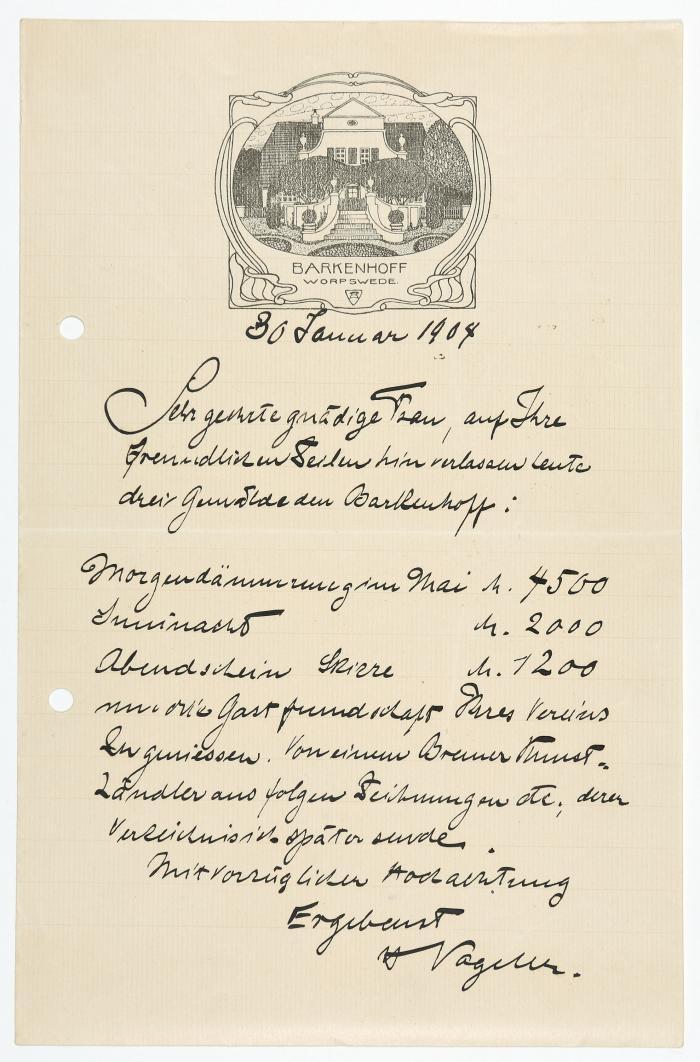 BARKENHOFF
WORPSWEDE.
30 Januar 1904
Sehr geehrte gnädige Frau, auf Ihre
freundlichen Zeilen hin verlassen heute
drei Gemälde den Barkenhoff:
Morgendämmerung im Mai M. 4500
Juninacht M. 2000
Abendschein Skizze M. 1200
um die Gastfreundschaft Ihres Vereins
zu geniessen. Von einem Bremer Kunst-
händler aus folgen Zeichnungen etc, deren
Verzeichnis ich später sende.
Mit vorzüglicher Hochachtung
Ergebenst
H Vogeler.